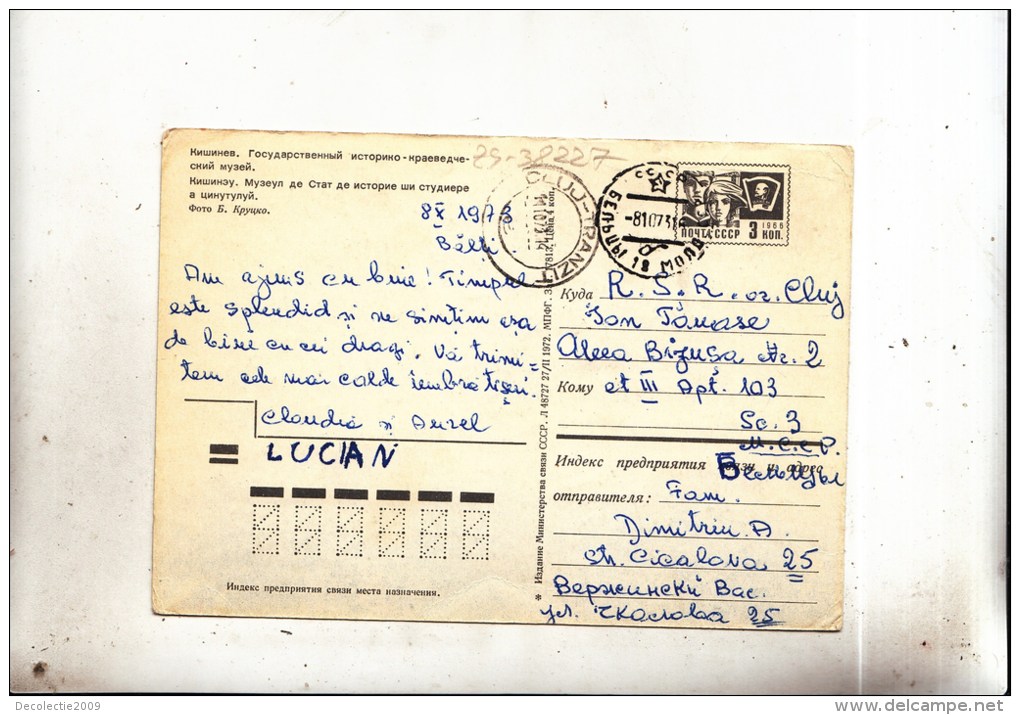 Кишинев. Государственный историко-краеведче-
ский музей.
Кишинэу. Музеул де Стат де историе ши студиере
а цинутулуй.
Фото Б. Круцко.
25-38227
8 X 1973
Bălți
Am ajuns cu bine! Timpul
este splendid și ne simțim așa
de bine cu cei dragi. Vă trimi=
tem cele mai calde îmbrățișeri.
Claudia și Aurel
LUCIAN
Индекс предприятия связи места назначения.
* Издание Министерства связи СССР. Л 48727 27/II 1972. МПФГ.
Цена 4 коп.
CLUJ-TRANZIT
СССР
-81073
18
ПОЧТА СССР 3 КОП.
1966
Куда R. S. R. or. Cluj
Ion Tănase
Aleea Bizușa Nr. 2
Кому et III Apt. 103
Sc. 3
М.С.С.Р.
Индекс предприятия связи и адрес
Бельцы
отправителя: Fam.
Dimitriu A.
str. Cicalova 25
Вержински Вас.
ул. Чкалова 25
Decolectie2009
delcampe.net